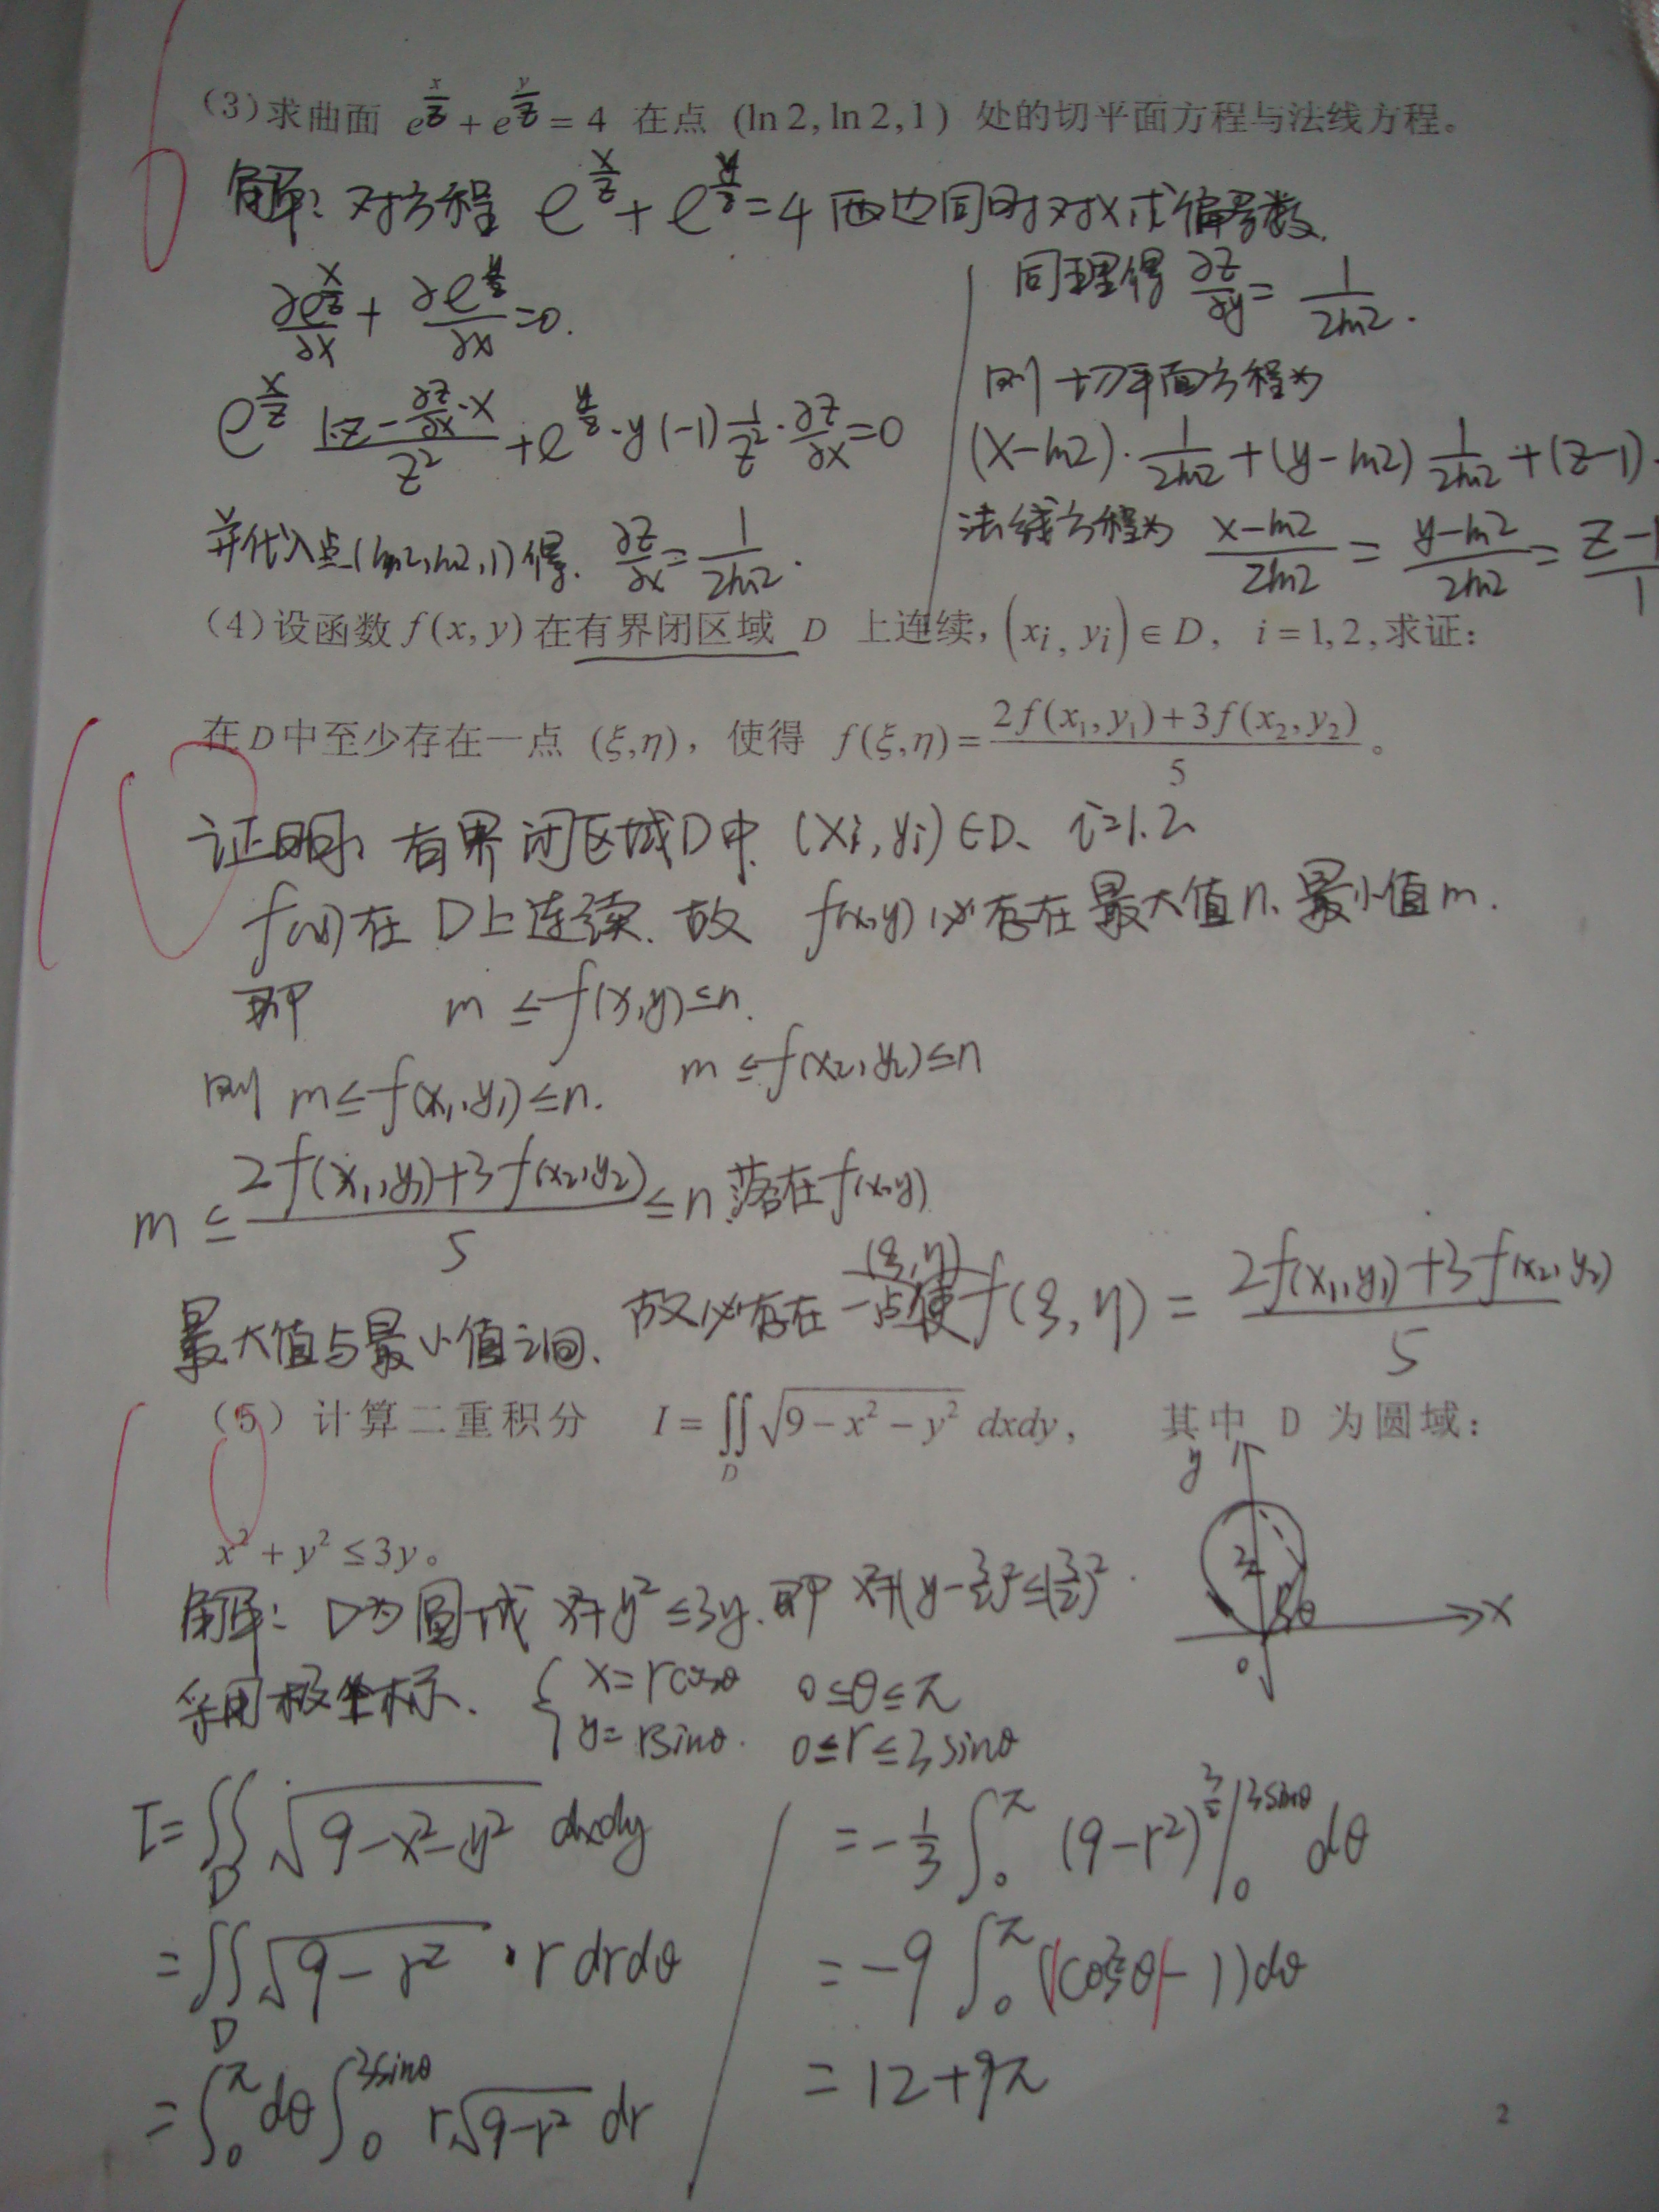 (3)求曲面 e^{x/z} + e^{y/z} = 4 在点 (ln 2, ln 2, 1) 处的切平面方程与法线方程。
解: 对方程 e^{x/z} + e^{y/z} = 4 两边同时对x求偏导数.
∂e^{x/z}/∂x + ∂e^{y/z}/∂x = 0.
e^{x/z} (1·z - ∂z/∂x·x)/z² + e^{y/z}·y(-1) 1/z²·∂z/∂x = 0
并代入点(ln2, ln2, 1)得. ∂z/∂x = 1/(2ln2).
同理得 ∂z/∂y = 1/(2ln2).
则切平面方程为
(x-ln2)·1/(2ln2) + (y-ln2) 1/(2ln2) + (z-1)
法线方程为 (x-ln2)/(2ln2) = (y-ln2)/(2ln2) = (z-1)/1
(4)设函数 f(x, y) 在有界闭区域 D 上连续, (x_i, y_i) ∈ D, i = 1, 2, 求证:
在 D 中至少存在一点 (ξ,η), 使得 f(ξ,η) = (2f(x₁,y₁)+3f(x₂,y₂))/5 。
10
证明: 有界闭区域D中, (x_i, y_i) ∈ D、 i=1.2.
f(x,y)在 D上连续. 故 f(x,y)必存在最大值n、最小值m.
即 m ≤ f(x,y) ≤ n.
则 m ≤ f(x₁,y₁) ≤ n. m ≤ f(x₂,y₂) ≤ n
m ≤ (2f(x₁,y₁)+3f(x₂,y₂))/5 ≤ n 落在f(x,y)
最大值与最小值之间. 故必存在一点(ξ,η)使 f(ξ,η) = (2f(x₁,y₁)+3f(x₂,y₂))/5
10
(5) 计算二重积分 I = ∬_D √(9 - x² - y²) dxdy, 其中 D 为圆域:
x² + y² ≤ 3y。
y
x
0
θ
解: D为圆域 x²+y² ≤ 3y. 即 x²+(y-3/2)² ≤ (3/2)².
采用极坐标. { x = rcosθ 0 ≤ θ ≤ π
y = rsinθ. 0 ≤ r ≤ 3sinθ
I = ∬_D √(9-x²-y²) dxdy
= ∬_D √(9-r²) · r drdθ
= ∫₀^π dθ ∫₀^{3sinθ} r√(9-r²) dr
= -1/3 ∫₀^π (9-r²)^{3/2} |₀^{3sinθ} dθ
= -9 ∫₀^π (|cos³θ| - 1) dθ
= 12+9π
2